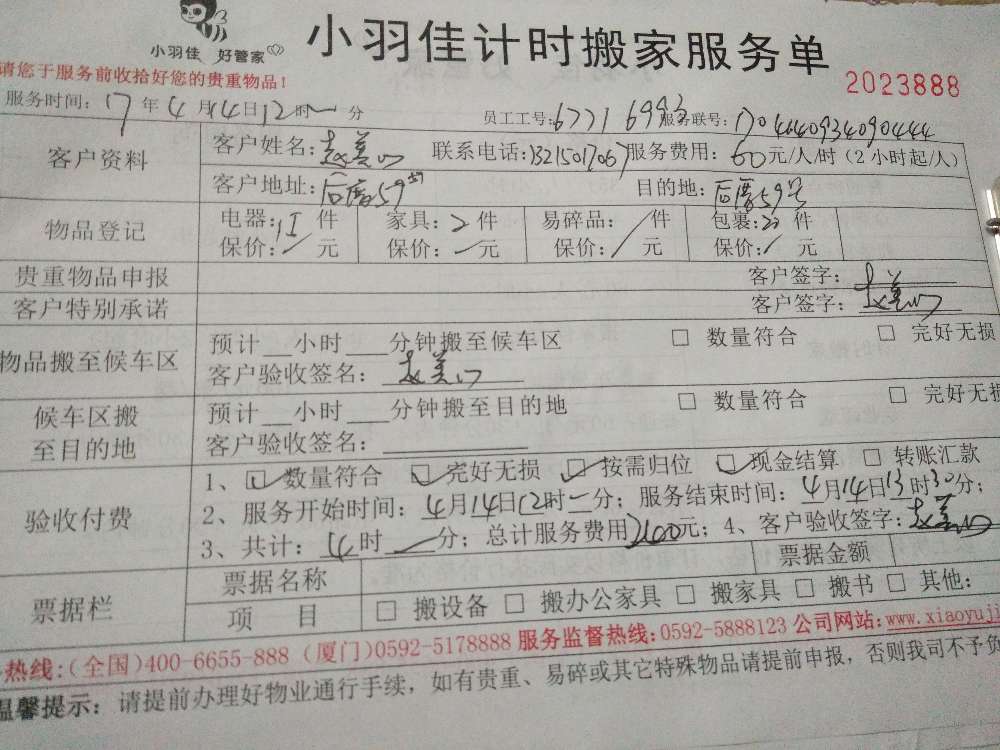 小羽佳 好管家
小羽佳计时搬家服务单
请您于服务前收拾好您的贵重物品!
2023888
服务时间: 17年4月14日12时一分
员工工号: 6771 6993 服务联号: 170464093409044
客户资料
客户姓名: 赵美 联系电话: 13215017067 服务费用: 60元/人/时(2小时起/人)
客户地址: 后厝59号 目的地: 后厝59号
物品登记
电器: 件 家具: 2件 易碎品: /件 包裹: 20件
保价: /元 保价: /元 保价: /元 保价: /元
贵重物品申报 客户签字: 赵美
客户特别承诺 客户签字: 赵美
物品搬至候车区
预计__小时___分钟搬至候车区 □ 数量符合 □ 完好无损
客户验收签名: 赵美
候车区搬至目的地
预计__小时___分钟搬至目的地 □ 数量符合 □ 完好无损
客户验收签名:
验收付费
1、☑数量符合 ☑完好无损 ☑按需归位 ☑现金结算 □ 转账汇款
2、服务开始时间: 4月14日12时一分; 服务结束时间: 4月14日13时30分;
3、共计: 时 分; 总计服务费用 元; 4、客户验收签字: 赵美
票据栏
票据名称 票据金额
项 目 □ 搬设备 □ 搬办公家具 □ 搬家具 □ 搬书 □ 其他:
热线:(全国)400-6655-888 (厦门)0592-5178888 服务监督热线:0592-5888123 公司网站:www.xiaoyujj
温馨提示: 请提前办理好物业通行手续,如有贵重、易碎或其它特殊物品请提前申报,否则我司不予